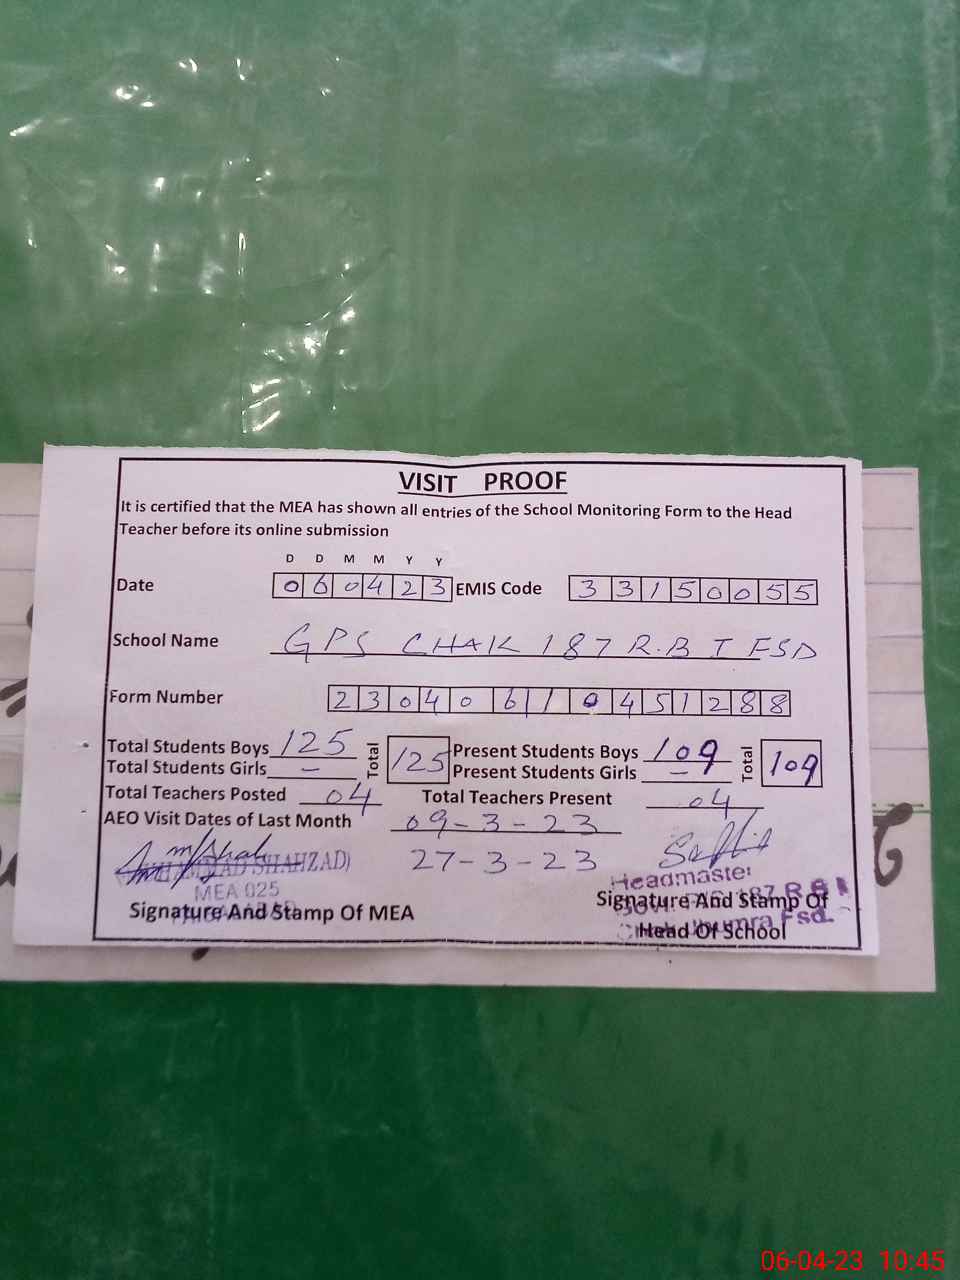 VISIT PROOF
It is certified that the MEA has shown all entries of the School Monitoring Form to the Head
Teacher before its online submission
D D M M Y Y
Date 060423 EMIS Code 33150055
School Name GPS CHAK 187 R.B I FSD
Form Number 2304061 0451288
Total Students Boys 125 Total 125 Present Students Boys 109 Total 109
Total Students Girls - Present Students Girls -
Total Teachers Posted 04 Total Teachers Present 04
AEO Visit Dates of Last Month 09-3-23
27-3-23
(MUHAMMAD SHAHZAD)
MEA 025
Signature And Stamp Of MEA
Headmaster
187 R.B
Signature And Stamp Of
Jhumra Fsd.
Head Of School
06-04-23 10:45